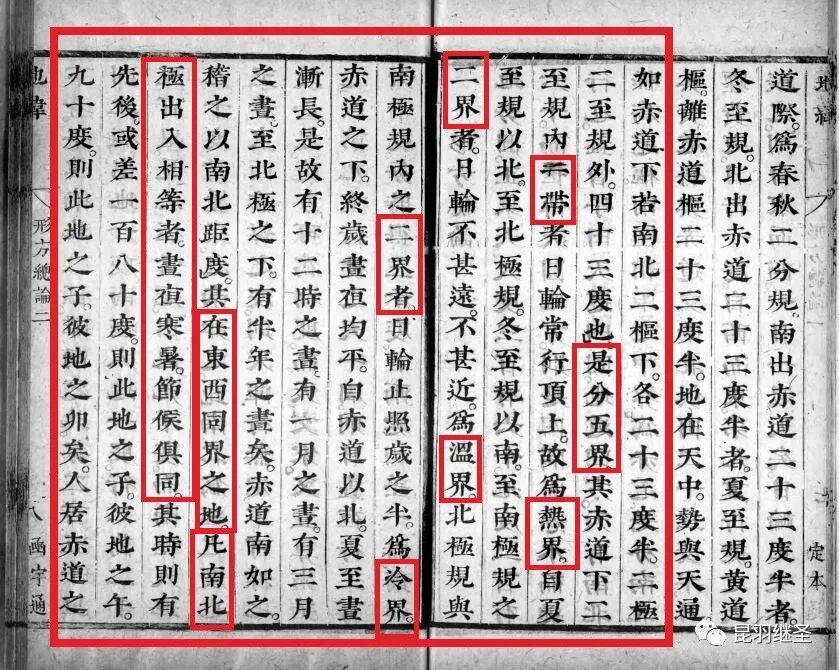 道際。爲春秋二分規。南出赤道二十三度半者。
冬至規。北出赤道二十三度半者。夏至規。黃道
樞。離赤道樞二十三度半。地在天中。勢與天通
如赤道下。若南北二樞下。各二十三度半。二極
二至規外。四十三度也。是分五界。其赤道下二
至規內。一帶者。日輪常行頂上。故爲熱界。自夏
至規以北。至北極規。冬至規以南。至南極規之
二界者。日輪不甚遠。不甚近。爲溫界。北極規與
南極規內之二界者。日輪止照歲之半。爲冷界。
赤道之下。終歲晝夜均平。自赤道以北。夏至晝
漸長。是故有十二時之晝。有一月之晝。有三月
之晝。至北極之下。有半年之晝矣。赤道南如之。
稽之以南北距度。其在東西同界之地。凡南北
極出入相等者。晝夜寒暑。節候俱同。其時則有
先後。或差一百八十度。則此地之子。彼地之午。
九十度。則此地之子。彼地之卯矣。人居赤道之
地緯
形方總論二
八
函宇通
定本
昆羽继圣